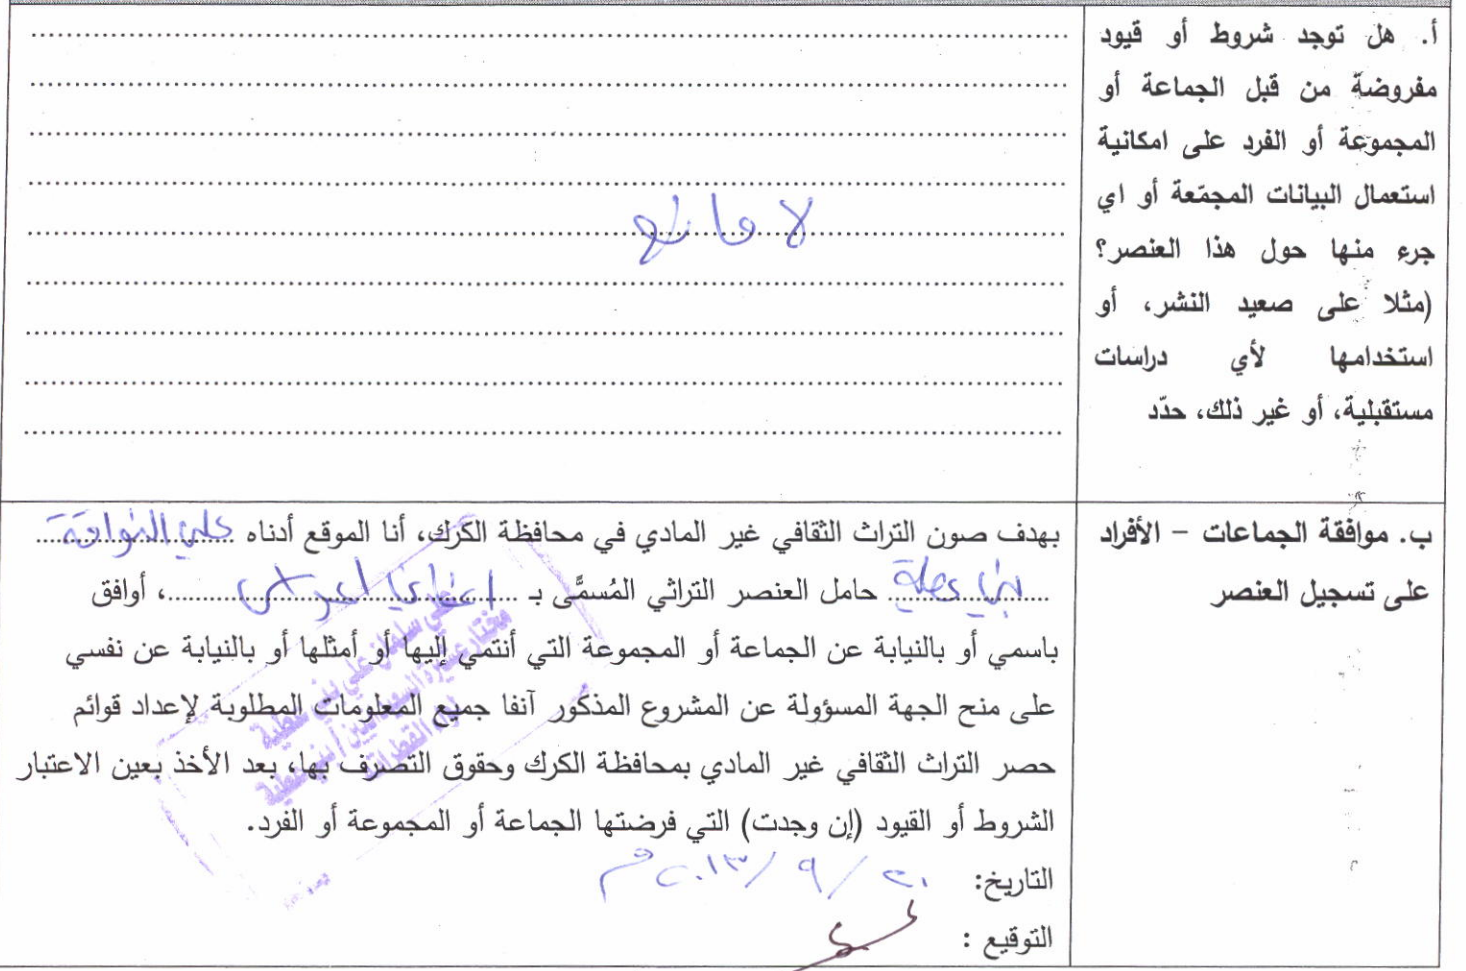 أ. هل توجد شروط أو قيود
مفروضة من قبل الجماعة أو
المجموعة أو الفرد على امكانية
استعمال البيانات المجمّعة أو اي
جرء منها حول هذا العنصر؟
(مثلا على صعيد النشر، أو
استخدامها لأي دراسات
مستقبلية، أو غير ذلك، حدّد
لا مانع
ب. موافقة الجماعات – الأفراد
على تسجيل العنصر
بهدف صون التراث الثقافي غير المادي في محافظة الكرك، أنا الموقع أدناه علي
بني عطية حامل العنصر التراثي المُسمَّى بـ اغاني اعراس، أوافق
باسمي أو بالنيابة عن الجماعة أو المجموعة التي أنتمي إليها أو أمثلها أو بالنيابة عن نفسي
على منح الجهة المسؤولة عن المشروع المذكور آنفا جميع المعلومات المطلوبة لإعداد قوائم
حصر التراث الثقافي غير المادي بمحافظة الكرك وحقوق التصرف بها، بعد الأخذ بعين الاعتبار
الشروط أو القيود (إن وجدت) التي فرضتها الجماعة أو المجموعة أو الفرد.
التاريخ: ٢٠/٩/٢٠١٣م
التوقيع :
علي سلمان علي بني عطية
لواء القطرانة